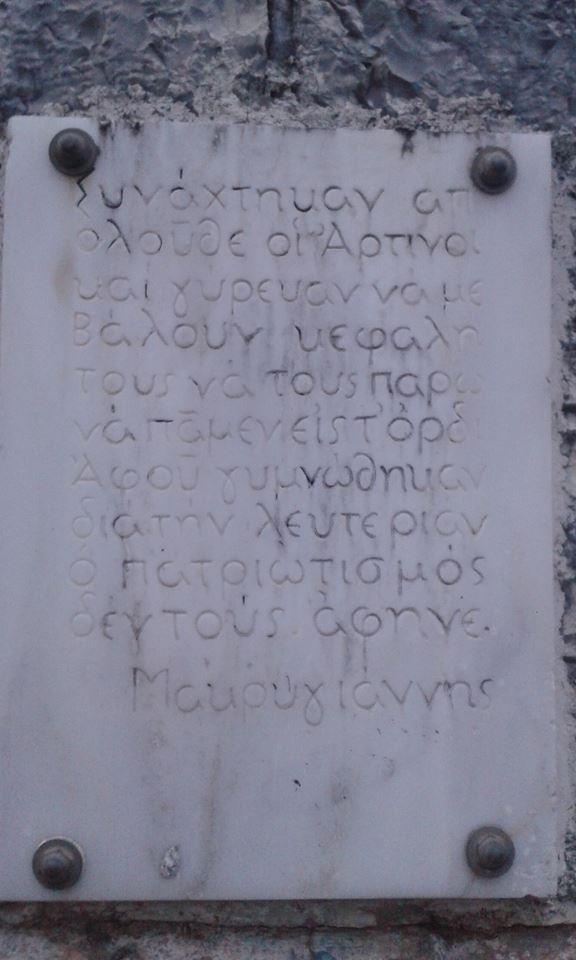 Συνάχτηκαν απ
ολοῦθε οἱ Ἀρτινοί
και γύρευαν νά με
βάλουν κεφαλή
τους νά τους πάρω
νά πᾶμεν εἰς τ' ὀρδί
Ἀφοῦ γυμνώθηκαν
διά την λευτεριάν
ὁ πατριωτισμός
δεν τούς ἀφηνε.
Μακρυγιάννης